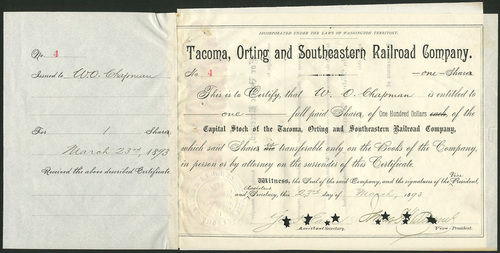 No. 4
Issued to W. O. Chapman
For 1 Shares
March 23rd, 1893
Received the above described Certificate
INCORPORATED UNDER THE LAWS OF WASHINGTON TERRITORY.
Tacoma, Orting and Southeastern Railroad Company.
No. 4 —one— Shares
This is to Certify, that W. O. Chapman is entitled to
one full paid Shares of One Hundred Dollars each, of the
Capital Stock of the Tacoma, Orting and Southeastern Railroad Company,
which said Shares are transferable only on the Books of the Company,
in person or by attorney on the surrender of this Certificate.
Witness, the Seal of the said Company, and the signatures of the Vice President,
and Assistant Secretary, this 23rd day of March, 1893
Assistant Secretary. Vice President.